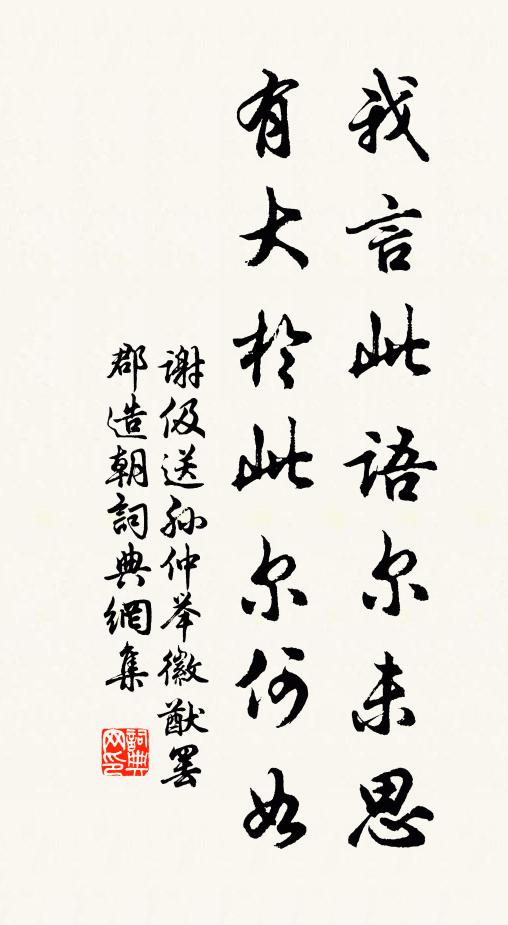 我言此语尔未思
有大於此尔何如
谢伋送孙仲举徽猷罢
郡造朝词典网集
詞典網印